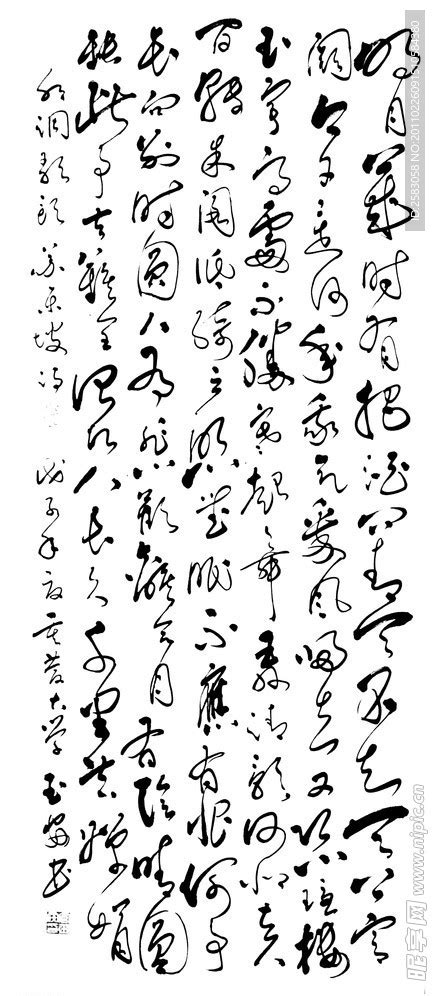 明月幾时有把酒问青天不知天上宫
阙今夕是何年我欲乘风归去又恐琼楼
玉宇高處不勝寒起舞弄清影何似在
人间转朱阁低绮户照无眠不應有恨何事
长向别时圆人有悲歡離合月有陰晴圆
缺此事古難全但愿人长久千里共婵娟
水调歌头 苏东坡词 戊子年夏 大学 书
ID:2583058 NO:20110226091
昵享网 www.nipic.cn